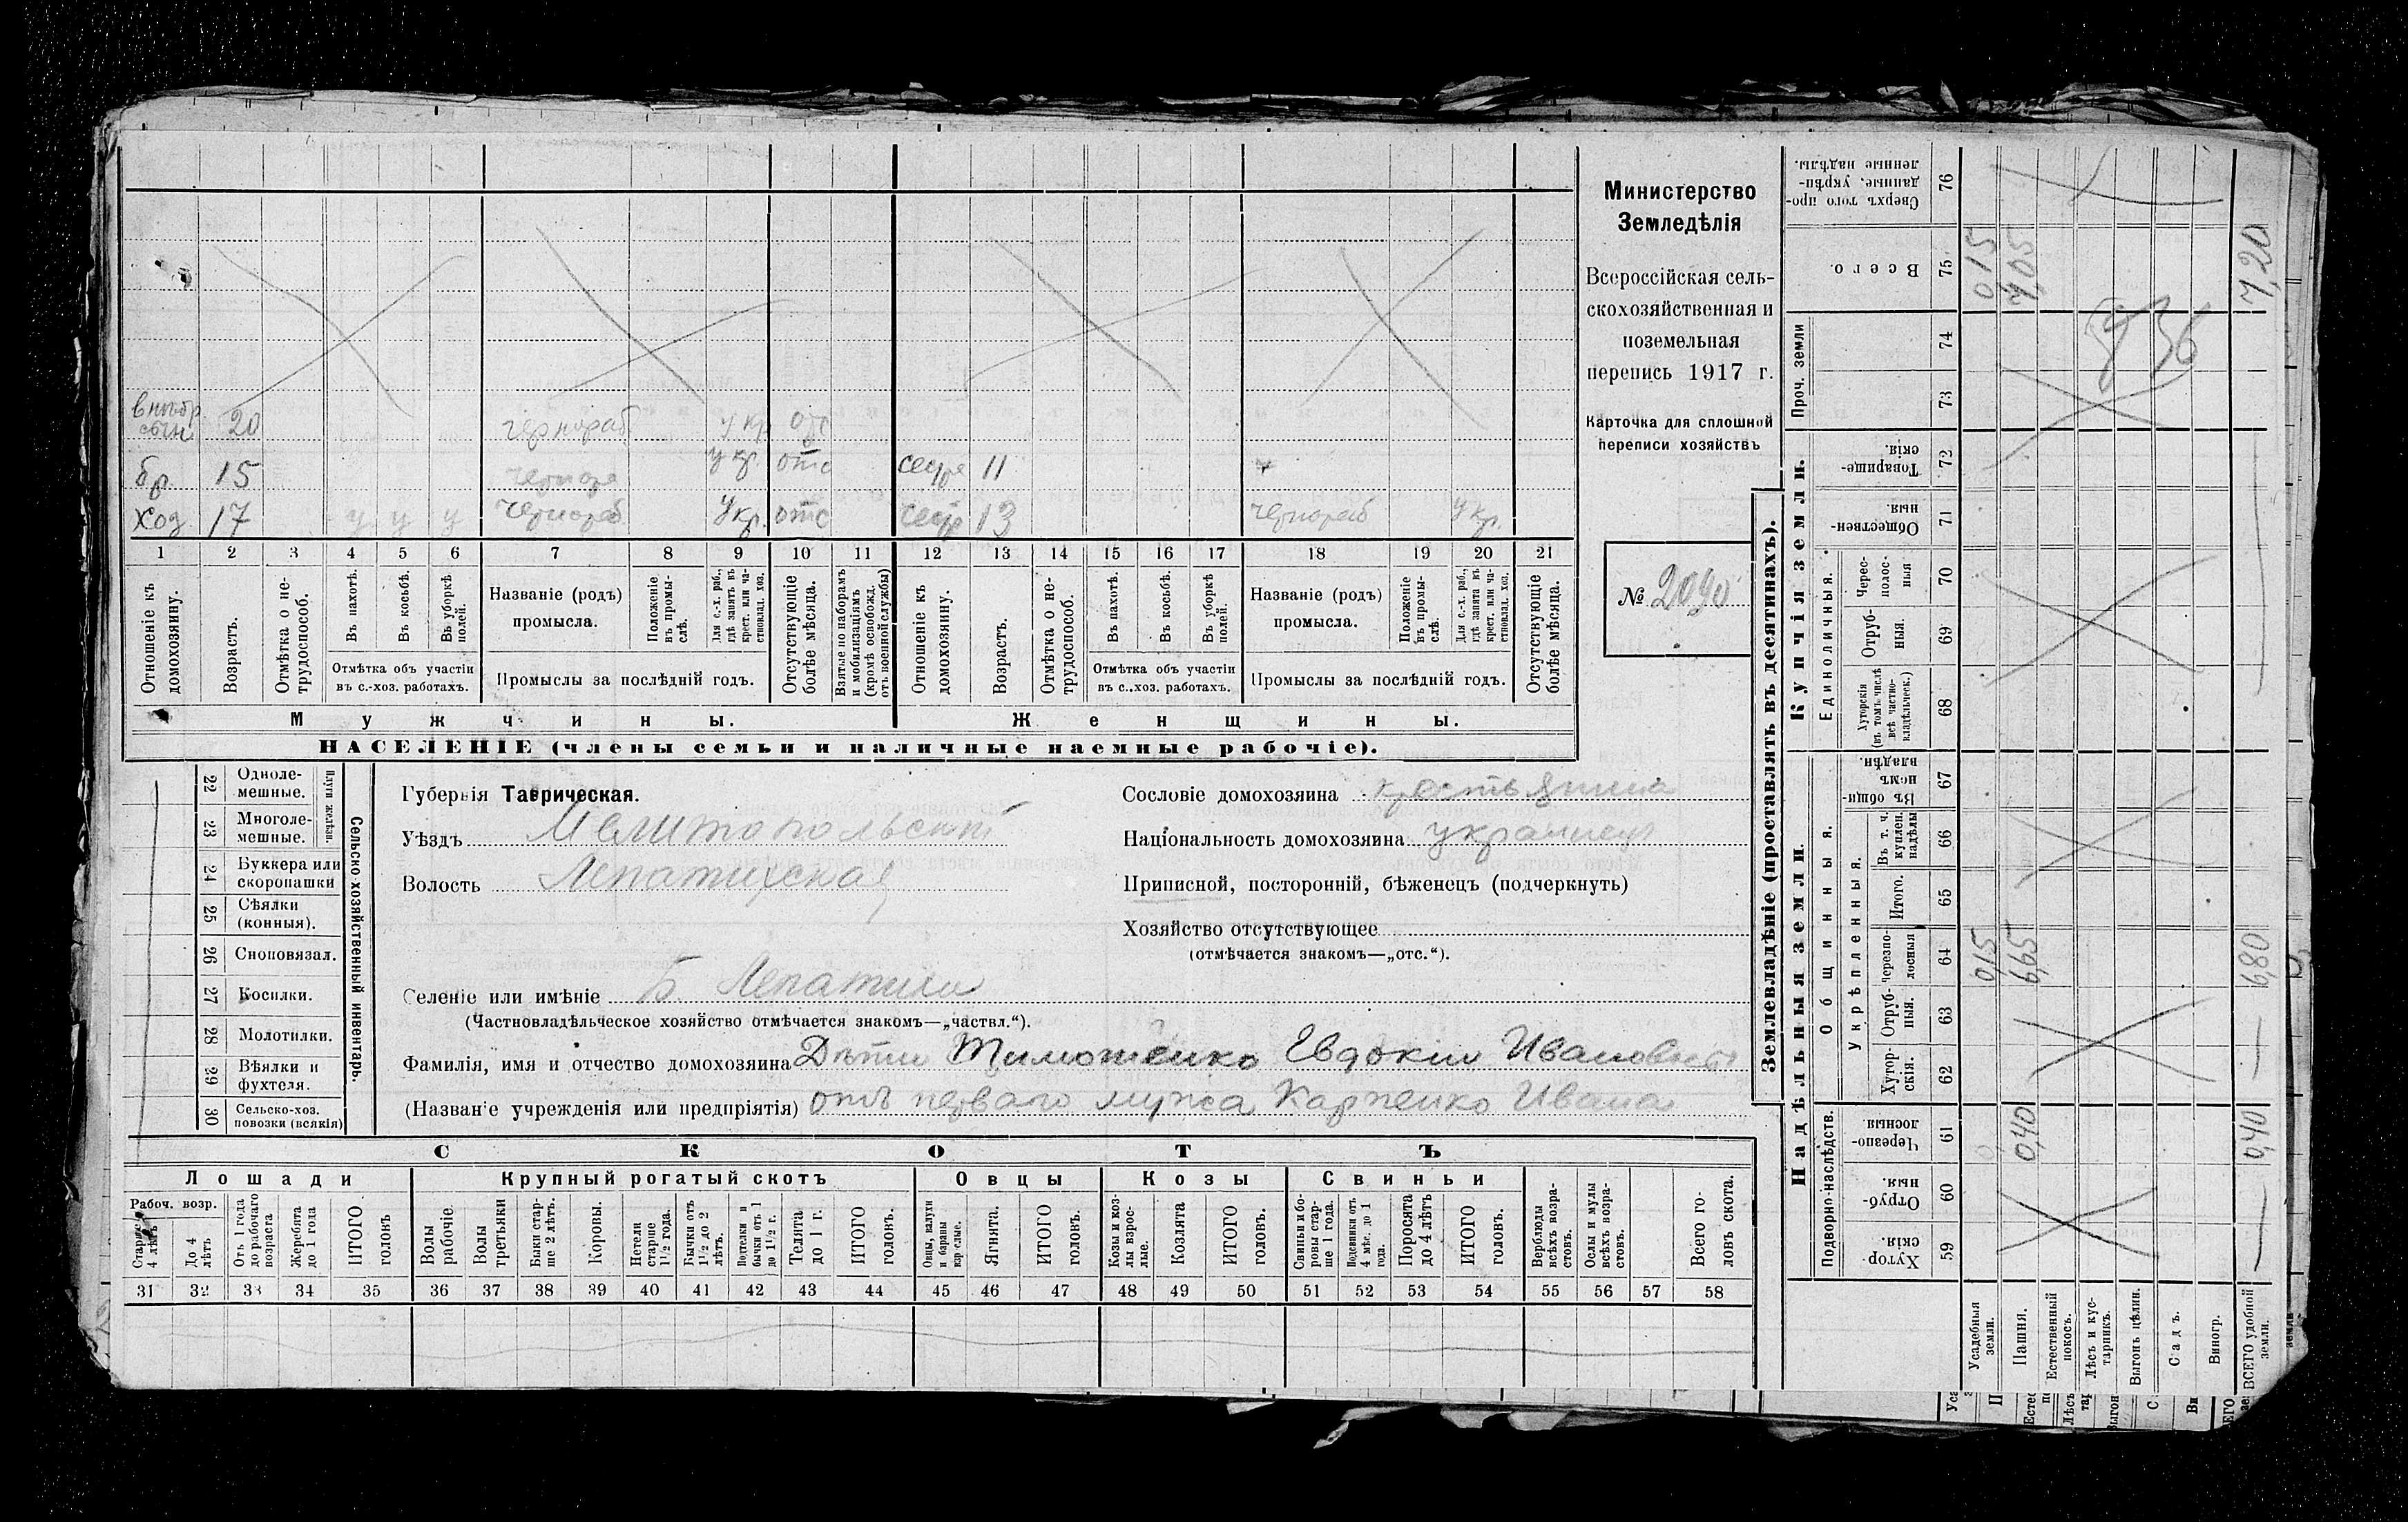 внѣбр. сынъ 20 чернораб укр отс
бр. 15 укр. отс сестра 11
Хоз 17 у у у чернораб Укр. отс сестр 13 чернораб Укр.
1 2 3 4 5 6 7 8 9 10 11 12 13 14 15 16 17 18 19 20 21
Отношеніе къ домохозяину.
Возрастъ.
Отмѣтка о нетрудоспособ.
Въ пахотѣ.
Въ косьбѣ.
Въ уборкѣ полей.
Отмѣтка объ участіи въ с.-хоз. работахъ.
Названіе (родъ) промысла.
Положеніе въ промыслѣ.
Для с.-х. раб., гдѣ занятъ въ крест. или частновлад. хоз.
Промыслы за послѣдній годъ.
Отсутствующіе болѣе мѣсяца.
Взятые по наборамъ и мобилизаціямъ (кромѣ освобожд. отъ военной службы)
Отношеніе къ домохозяину.
Возрастъ.
Отмѣтка о нетрудоспособ.
Въ пахотѣ.
Въ косьбѣ.
Въ уборкѣ полей.
Отмѣтка объ участіи въ с.-хоз. работахъ.
Названіе (родъ) промысла.
Положеніе въ промыслѣ.
Для с.-х. раб., гдѣ занята въ крест. или частновлад. хоз.
Промыслы за послѣдній годъ.
Отсутствующіе болѣе мѣсяца.
Мужчины. Женщины.
НАСЕЛЕНІЕ (члены семьи и наличные наемные рабочіе).
Министерство
Земледѣлія
Всероссійская сель-
скохозяйственная и
поземельная
перепись 1917 г.
Карточка для сплошной
переписи хозяйствъ
№ 2090
22 Одноле-
мешные.
23 Многоле-
мешные.
Плуги желѣзн.
24 Буккера или
скоропашки
25 Сѣялки
(конныя).
26 Сноповязал.
27 Косилки.
28 Молотилки.
29 Вѣялки и
фухтеля.
30 Сельско-хоз.
повозки (всякія)
Сельско-хозяйственный инвентарь.
Губернія Таврическая.
Уѣздъ Мелитопольскій
Волость Лепатихская
Селеніе или имѣніе Б. Лепатиха
(Частновладѣльческое хозяйство отмѣчается знакомъ—„частвл.“).
Сословіе домохозяина крестьянина
Національность домохозяина украинец
Приписной, посторонній, бѣженецъ (подчеркнуть)
Хозяйство отсутствующее
(отмѣчается знакомъ—„отс.“).
Фамилія, имя и отчество домохозяина Дѣти Тимошенко Евдокіи Ивановны
(Назван'е учрежденія или предпріятія) отъ перваго мужа Карпенко Ивана
СКОТЪ
Лошади Крупный рогатый скотъ Овцы Козы Свиньи
Рабоч. возр.
Старше 4 лѣтъ
До 4 лѣтъ
Отъ 1 года до рабочаго возраста
Жеребята до 1 года
ИТОГО головъ
Волы рабочіе.
Волы третьяки
Быки старше 2 лѣтъ.
Коровы.
Нетели старше 1 1/2 года.
Бычки отъ 1 1/2 до 2 лѣтъ.
Подтелки и бычки отъ 1 до 1 1/2 г.
Телята до 1 г.
ИТОГО головъ.
Овцы, валухи и бараны взрослые.
Ягнята.
ИТОГО головъ.
Козы и козлы взрослые.
Козлята
ИТОГО головъ.
Свиньи и боровы старше 1 года.
Подсвинки отъ 4 мѣс. до 1 года.
Поросята до 4 лѣтъ
ИТОГО головъ.
Верблюды всѣхъ возрастовъ.
Ослы и мулы всѣхъ возрастовъ.
Всего головъ скота.
31 32 33 34 35 36 37 38 39 40 41 42 43 44 45 46 47 48 49 50 51 52 53 54 55 56 57 58
Землевладѣніе (проставлять въ десятинахъ).
Сверхъ того проданные, укрѣпленные надѣлы. 76
Всего. 75 015 7,05 7,20
Проч. земли 74 73
936
Купчія земли.
Товарищескія. 72
Общественныя. 71
Единоличныя.
Чересполосныя 70
Отрубныя. 69
Хуторскія (въ томъ числѣ всѣ частновладѣльческ.) 68
Надѣльныя земли.
Общинныя.
Въ общинномъ владѣн. 67
Укрѣпленныя.
Въ т. ч. куплен. надѣлы 66
Итого. 65
Черезполосныя 64 015 6,65 6,80
Отрубныя. 63
Хуторскія. 62
Подворно-наслѣдств.
Черезполосныя. 61 0,40 0,40
Отрубныя. 60
Хуторскія. 59
Усадебныя земли.
Пашня.
Естественный покосъ.
Лѣсъ и кустарникъ.
Выгонъ цѣлин.
Садъ.
Виногр.
ВСЕГО удобной земли.